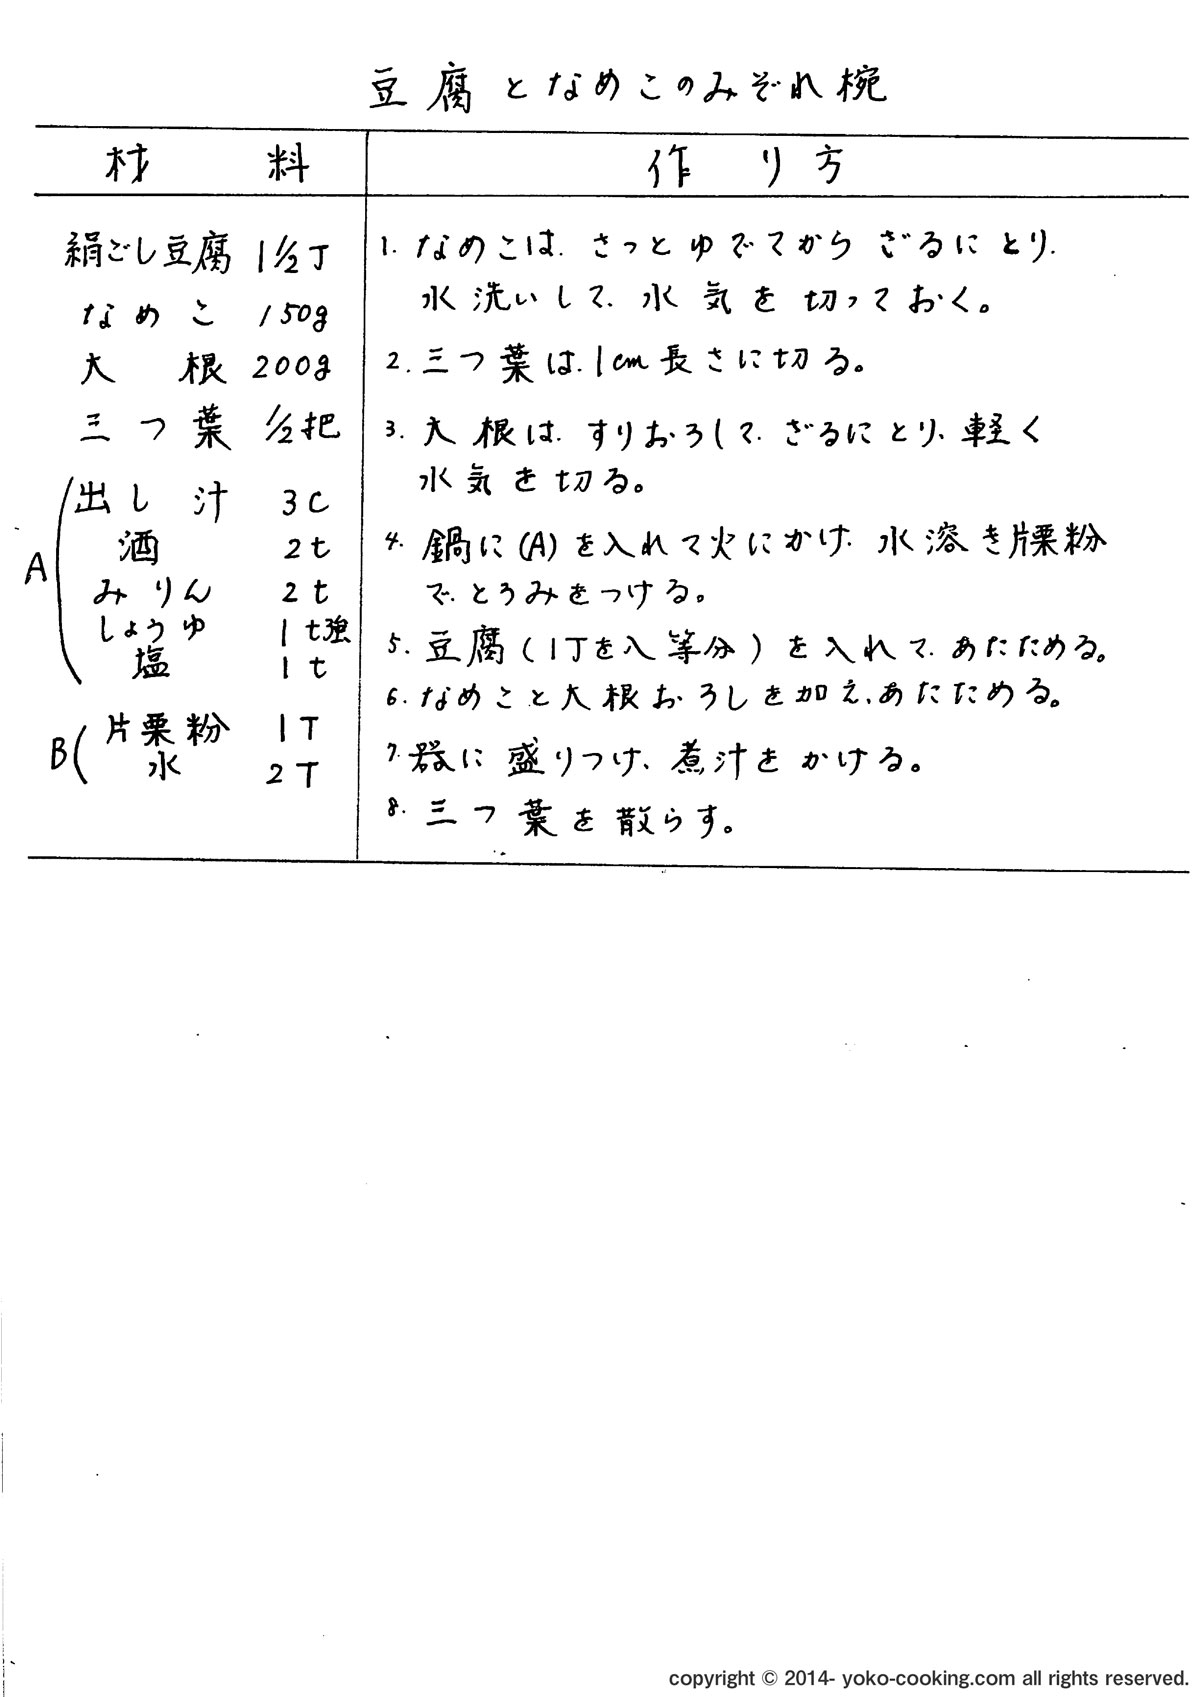 豆腐となめこのみぞれ椀
材料
作り方
絹ごし豆腐 1 1/2丁
なめこ 150g
大根 200g
三つ葉 1/2把
A
出し汁 3C
酒 2t
みりん 2t
しょうゆ 1t強
塩 1t
B
片栗粉 1T
水 2T
1. なめこは、さっとゆでてからざるにとり、
水洗いして、水気を切っておく。
2. 三つ葉は、1cm長さに切る。
3. 大根は、すりおろして、ざるにとり、軽く
水気を切る。
4. 鍋に(A)を入れて火にかけ、水溶き片栗粉
で、とろみをつける。
5. 豆腐(1丁を八等分)を入れて、あたためる。
6. なめこと大根おろしを加え、あたためる。
7. 器に盛りつけ、煮汁をかける。
8. 三つ葉を散らす。
copyright © 2014- yoko-cooking.com all rights reserved.